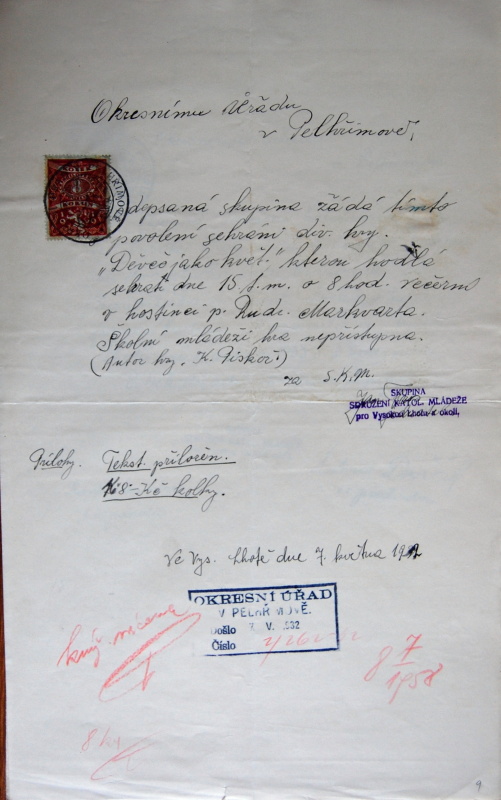 Okresnímu úřadu
v Pelhřimově,
depsaná skupina žádá tímto
povolení sehrání div. hry.
„Děvče jako květ." kterou hodlá
sehrát dne 15 t.m. o 8 hod. večerní
v hostinci p. Rud. Markvarta.
Školní mládeži hra nepřístupna.
(Autor hry K. Piskoř.)
za S.K.M.
SKUPINA
SDRUŽENÍ KATOL. MLÁDEŽE
pro Vysokou Lhotu a okolí,
Přílohy. Tekst. přiložen.
8 Kč kolky.
Ve Vys. Lhotě dne 7. května 1932
OKRESNÍ ÚŘAD
V PELHŘIMOVĚ.
Došlo 7. V. 1932
Číslo
8 7
1958
9